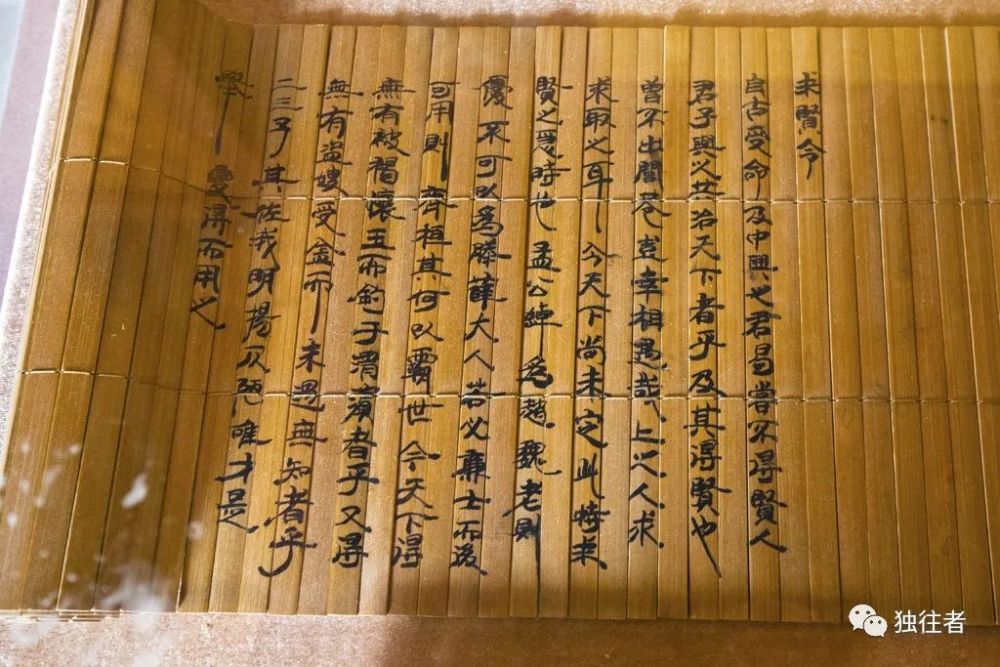 求賢令
自古受命及中興之君曷嘗不得賢人
君子與之共治天下者乎及其得賢也
曾不出閭巷豈幸相遇哉上之人求
求取之耳今天下尚未定此特求
賢之急時也孟公綽為趙魏老則
優不可以為滕薛大人若必廉士而後
可用則齊桓其何以霸世今天下得
無有被褐懷玉而釣于渭濱者乎又得
無有盜嫂受金而未遇無知者乎
二三子其佐我明揚仄陋唯才是
舉得而用之
独往者